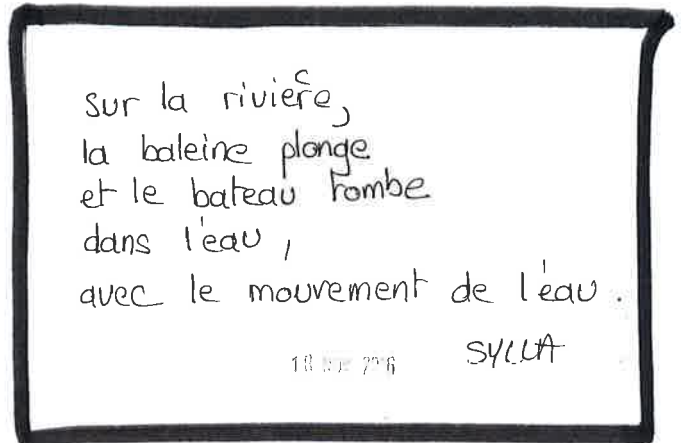 sur la rivière,
la baleine plonge
et le bateau tombe
dans l'eau,
avec le mouvement de l'eau.
SYLLA